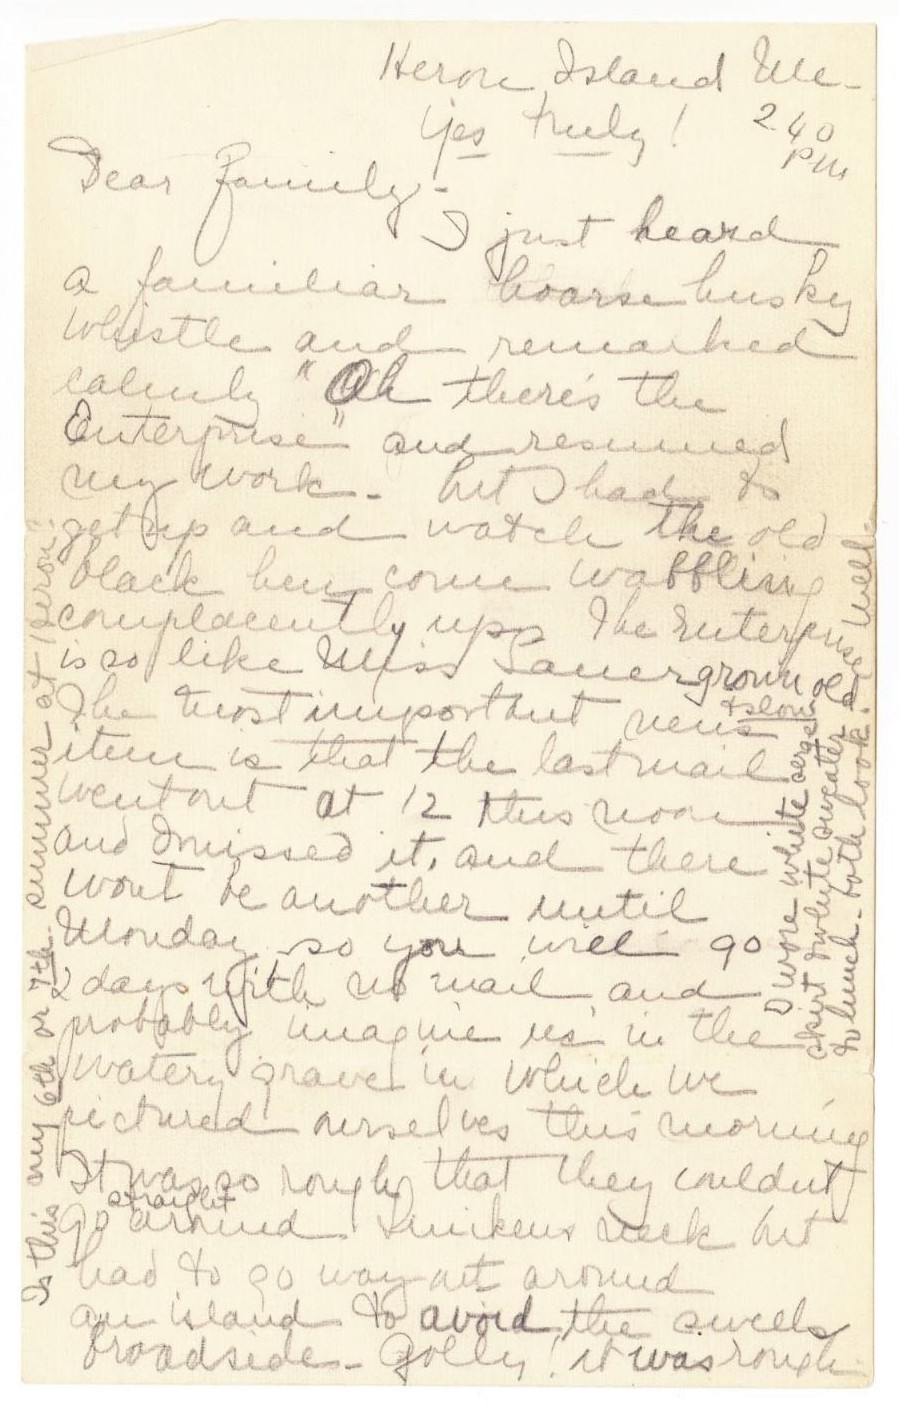 Heron Island Me-
Yes truly! 2 40
PM
Dear Family-
I just heard
a familiar hoarse husky
whistle and remarked
calmly "Oh there's the
Enterprise" and resumed
my work- but I had to
get up and watch the old
black hen come wabbling
complacently up. The Enterprise
is so like Miss grown old
& slow
The most important news
item is that the last mail
went out at 12 this noon
and I missed it, and there
wont be another until
Monday so you will go
2 days with no mail and
probably imagine us in the
watery grave in which we
pictured ourselves this morning
It was so rough that they couldnt
straight
go around Linikens neck but
had to go way out around
an island to avoid the swells
broadside- Golly! it was rough
I wore white serge
skirt & white sweater
to lunch- both look well
Is this my 6th or 7th summer at Heron?